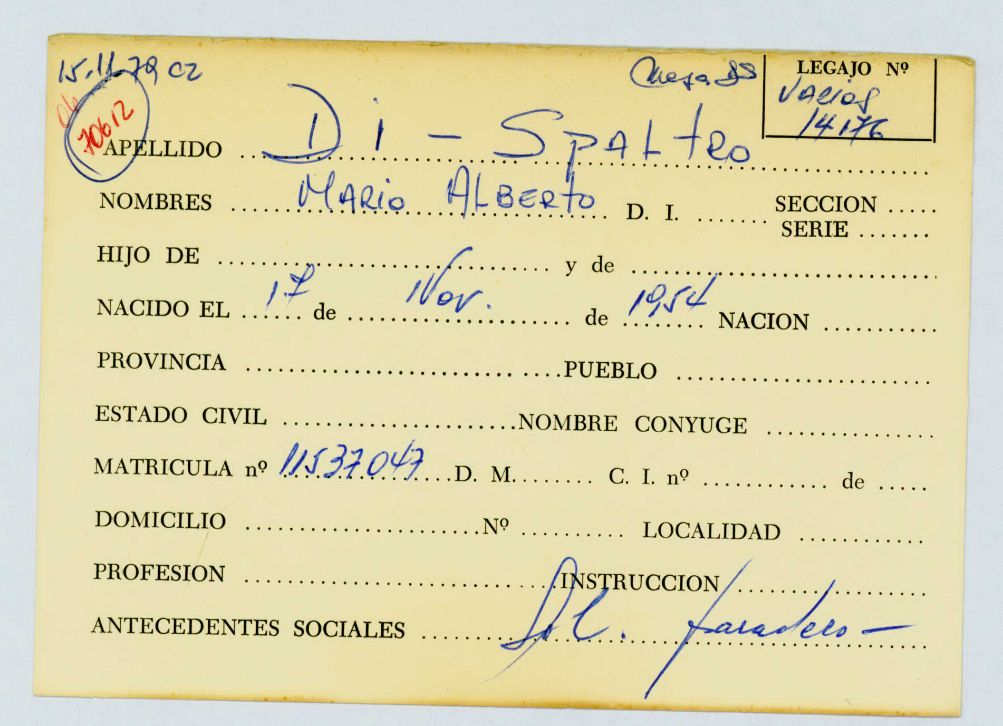 15.11.79 CZ
Mesa DS
LEGAJO Nº
Varios
14176
70612
APELLIDO Di - Spaltro
NOMBRES Mario Alberto D. I. SECCION
SERIE
HIJO DE y de
NACIDO EL 17 de Nov. de 1954 NACION
PROVINCIA PUEBLO
ESTADO CIVIL NOMBRE CONYUGE
MATRICULA nº 11537047 D. M. C. I. nº de
DOMICILIO Nº LOCALIDAD
PROFESION INSTRUCCION
ANTECEDENTES SOCIALES Sol. paradero -